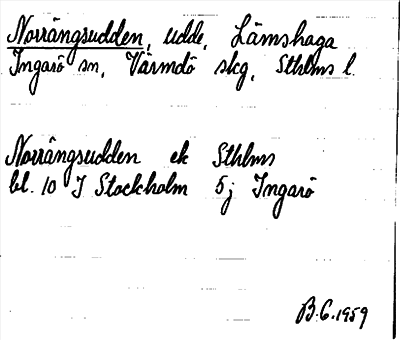 Norrängsudden, udde, Lämshaga
Ingarö sn, Värmdö skg, Sthlms l.
Norrängsudden ek Sthlms
bl. 10 I Stockholm 5j Ingarö
B.G.1959